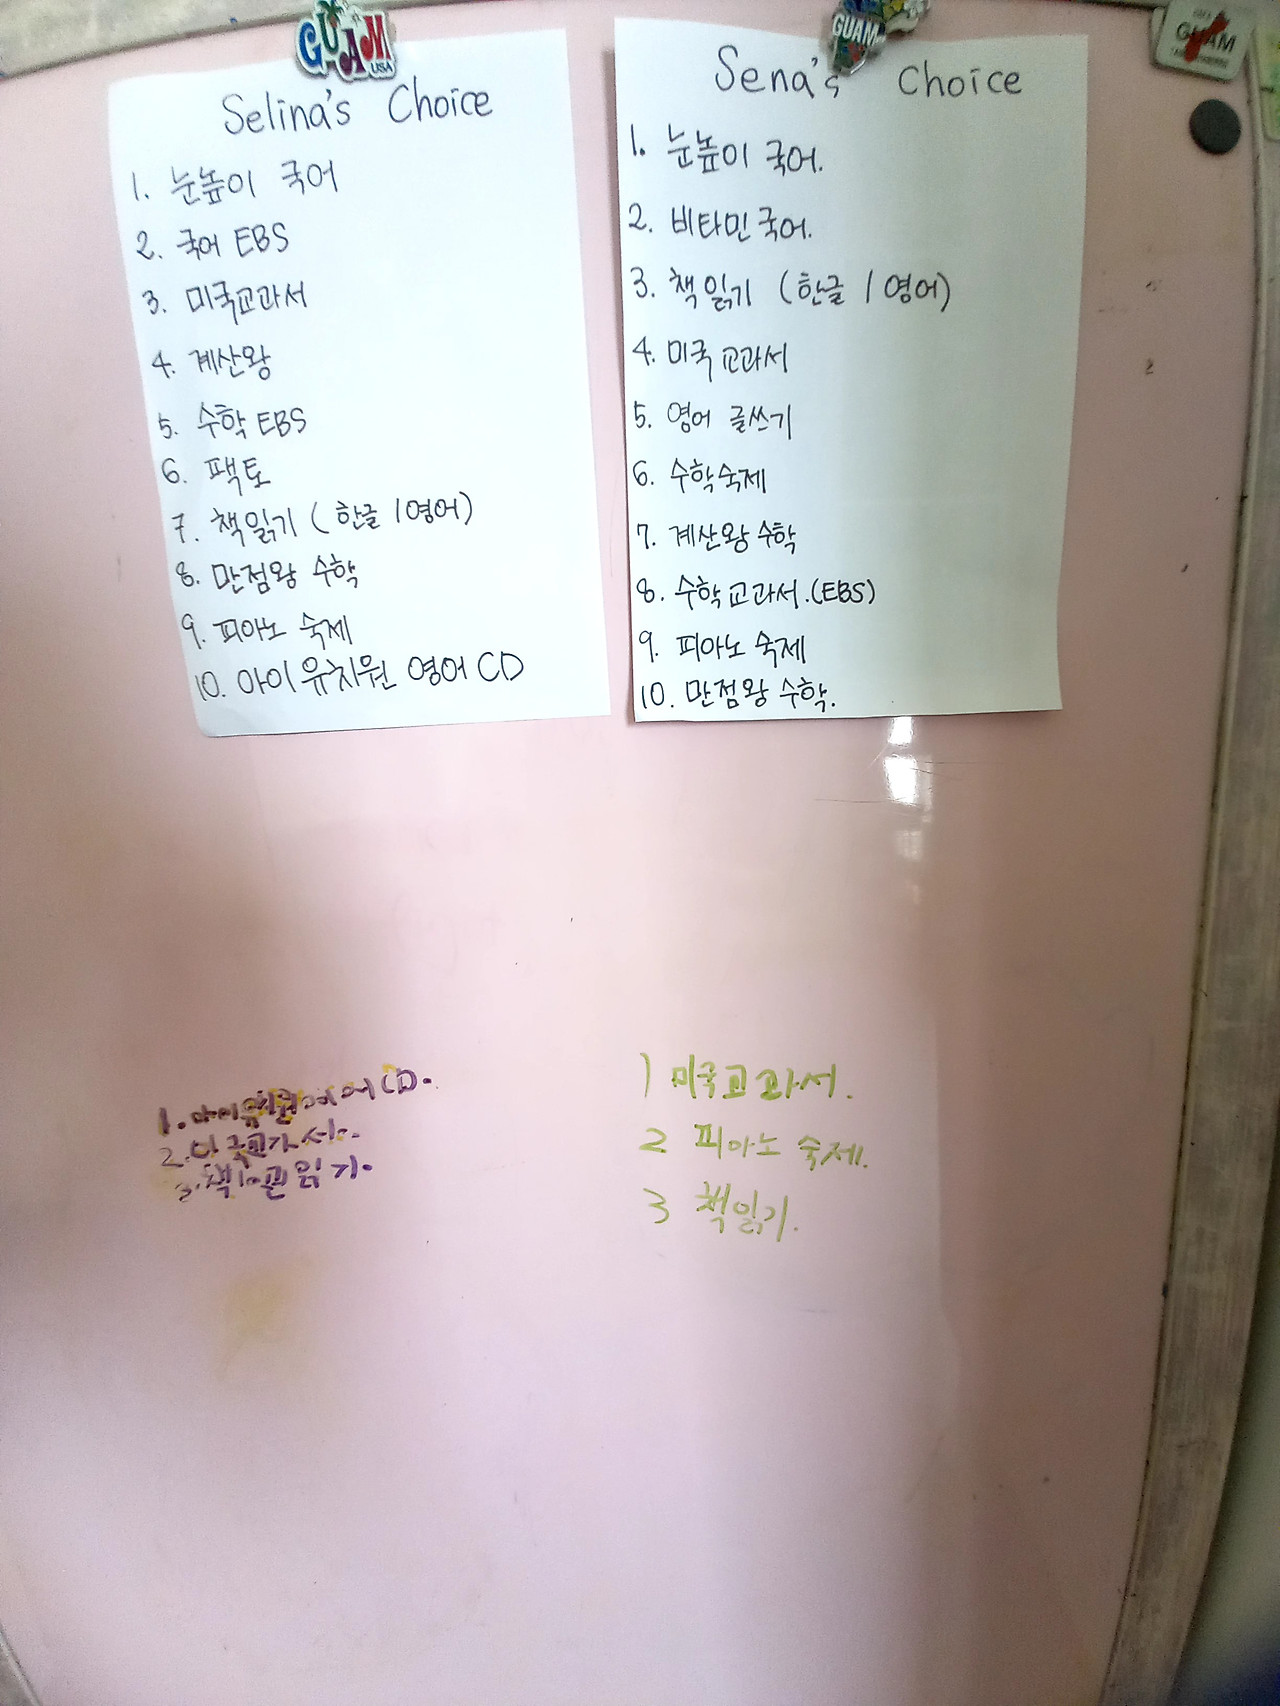 GUAM
USA
Selina's Choice
1. 눈높이 국어
2. 국어 EBS
3. 미국교과서
4. 계산왕
5. 수학 EBS
6. 팩토
7. 책읽기 (한글 / 영어)
8. 만점왕 수학
9. 피아노 숙제
10. 아이유치원 영어 CD
GUAM
Sena's Choice
1. 눈높이 국어.
2. 비타민 국어.
3. 책 읽기 (한글 / 영어)
4. 미국 교과서
5. 영어 글쓰기
6. 수학숙제
7. 계산왕 수학
8. 수학교과서.(EBS)
9. 피아노 숙제
10. 만점왕 수학.
GUAM
1. 아이유치원 영어 CD.
2. 미국교과서.
3. 책 읽기.
1 미국교과서.
2 피아노 숙제.
3 책읽기.